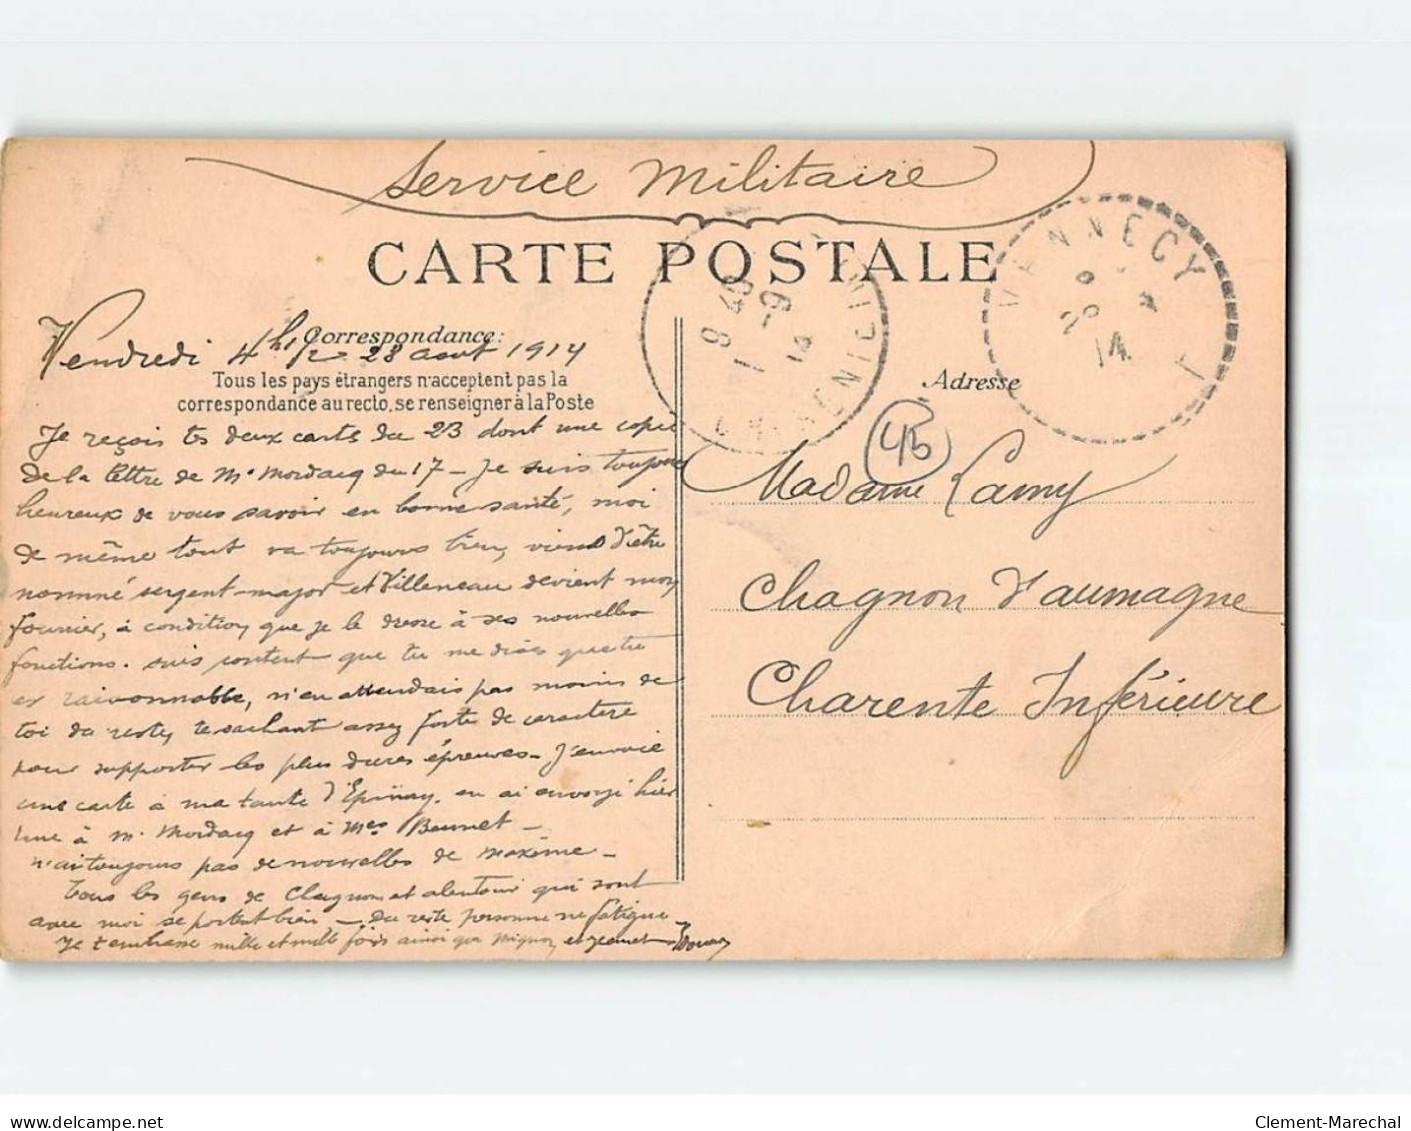 Service Militaire
CARTE POSTALE
VENNECY
28
14
19 40
1-9
14
Correspondance:
Vendredi 4h 1/2 28 aout 1914
Tous les pays étrangers n'acceptent pas la
correspondance au recto, se renseigner à la Poste
Adresse
45
Je reçois tes deux cartes du 23 dont une copie
de la lettre de Mr Mordacq du 17 - Je suis toujours
heureux de vous savoir en bonne santé, moi
de même tout va toujours bien, viens d'être
nommé sergent-major et Villeneau devient mon
fourrier, à condition que je le dresse à ses nouvelles
fonctions. suis content que tu me dises que tu
es raisonnable, n'en attendais pas moins de
toi du reste, te sachant assez forte de caractère
pour supporter les plus dures épreuves - J'envoie
une carte à ma tante d'Epinay, en ai envoyé hier
une à Mr Mordacq et à Mes Beunet -
n'ai toujours pas de nouvelles de Maxime -
Tous les gens de Chagnon et alentour qui sont
avec moi se portent bien - Du reste personne ne fatigue
Je t'embrasse mille et mille fois ainsi que Mignon et
Madame Lamy
Chagnon d'aumagne
Charente Inférieure
Clement-Marechal
www.delcampe.net